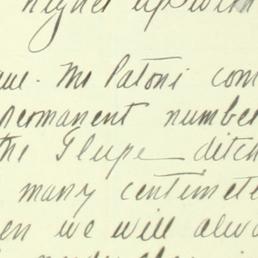 higher up with
Mr Patoni com
permanent number
the Slupe ditch
many centimete
en we will alwa